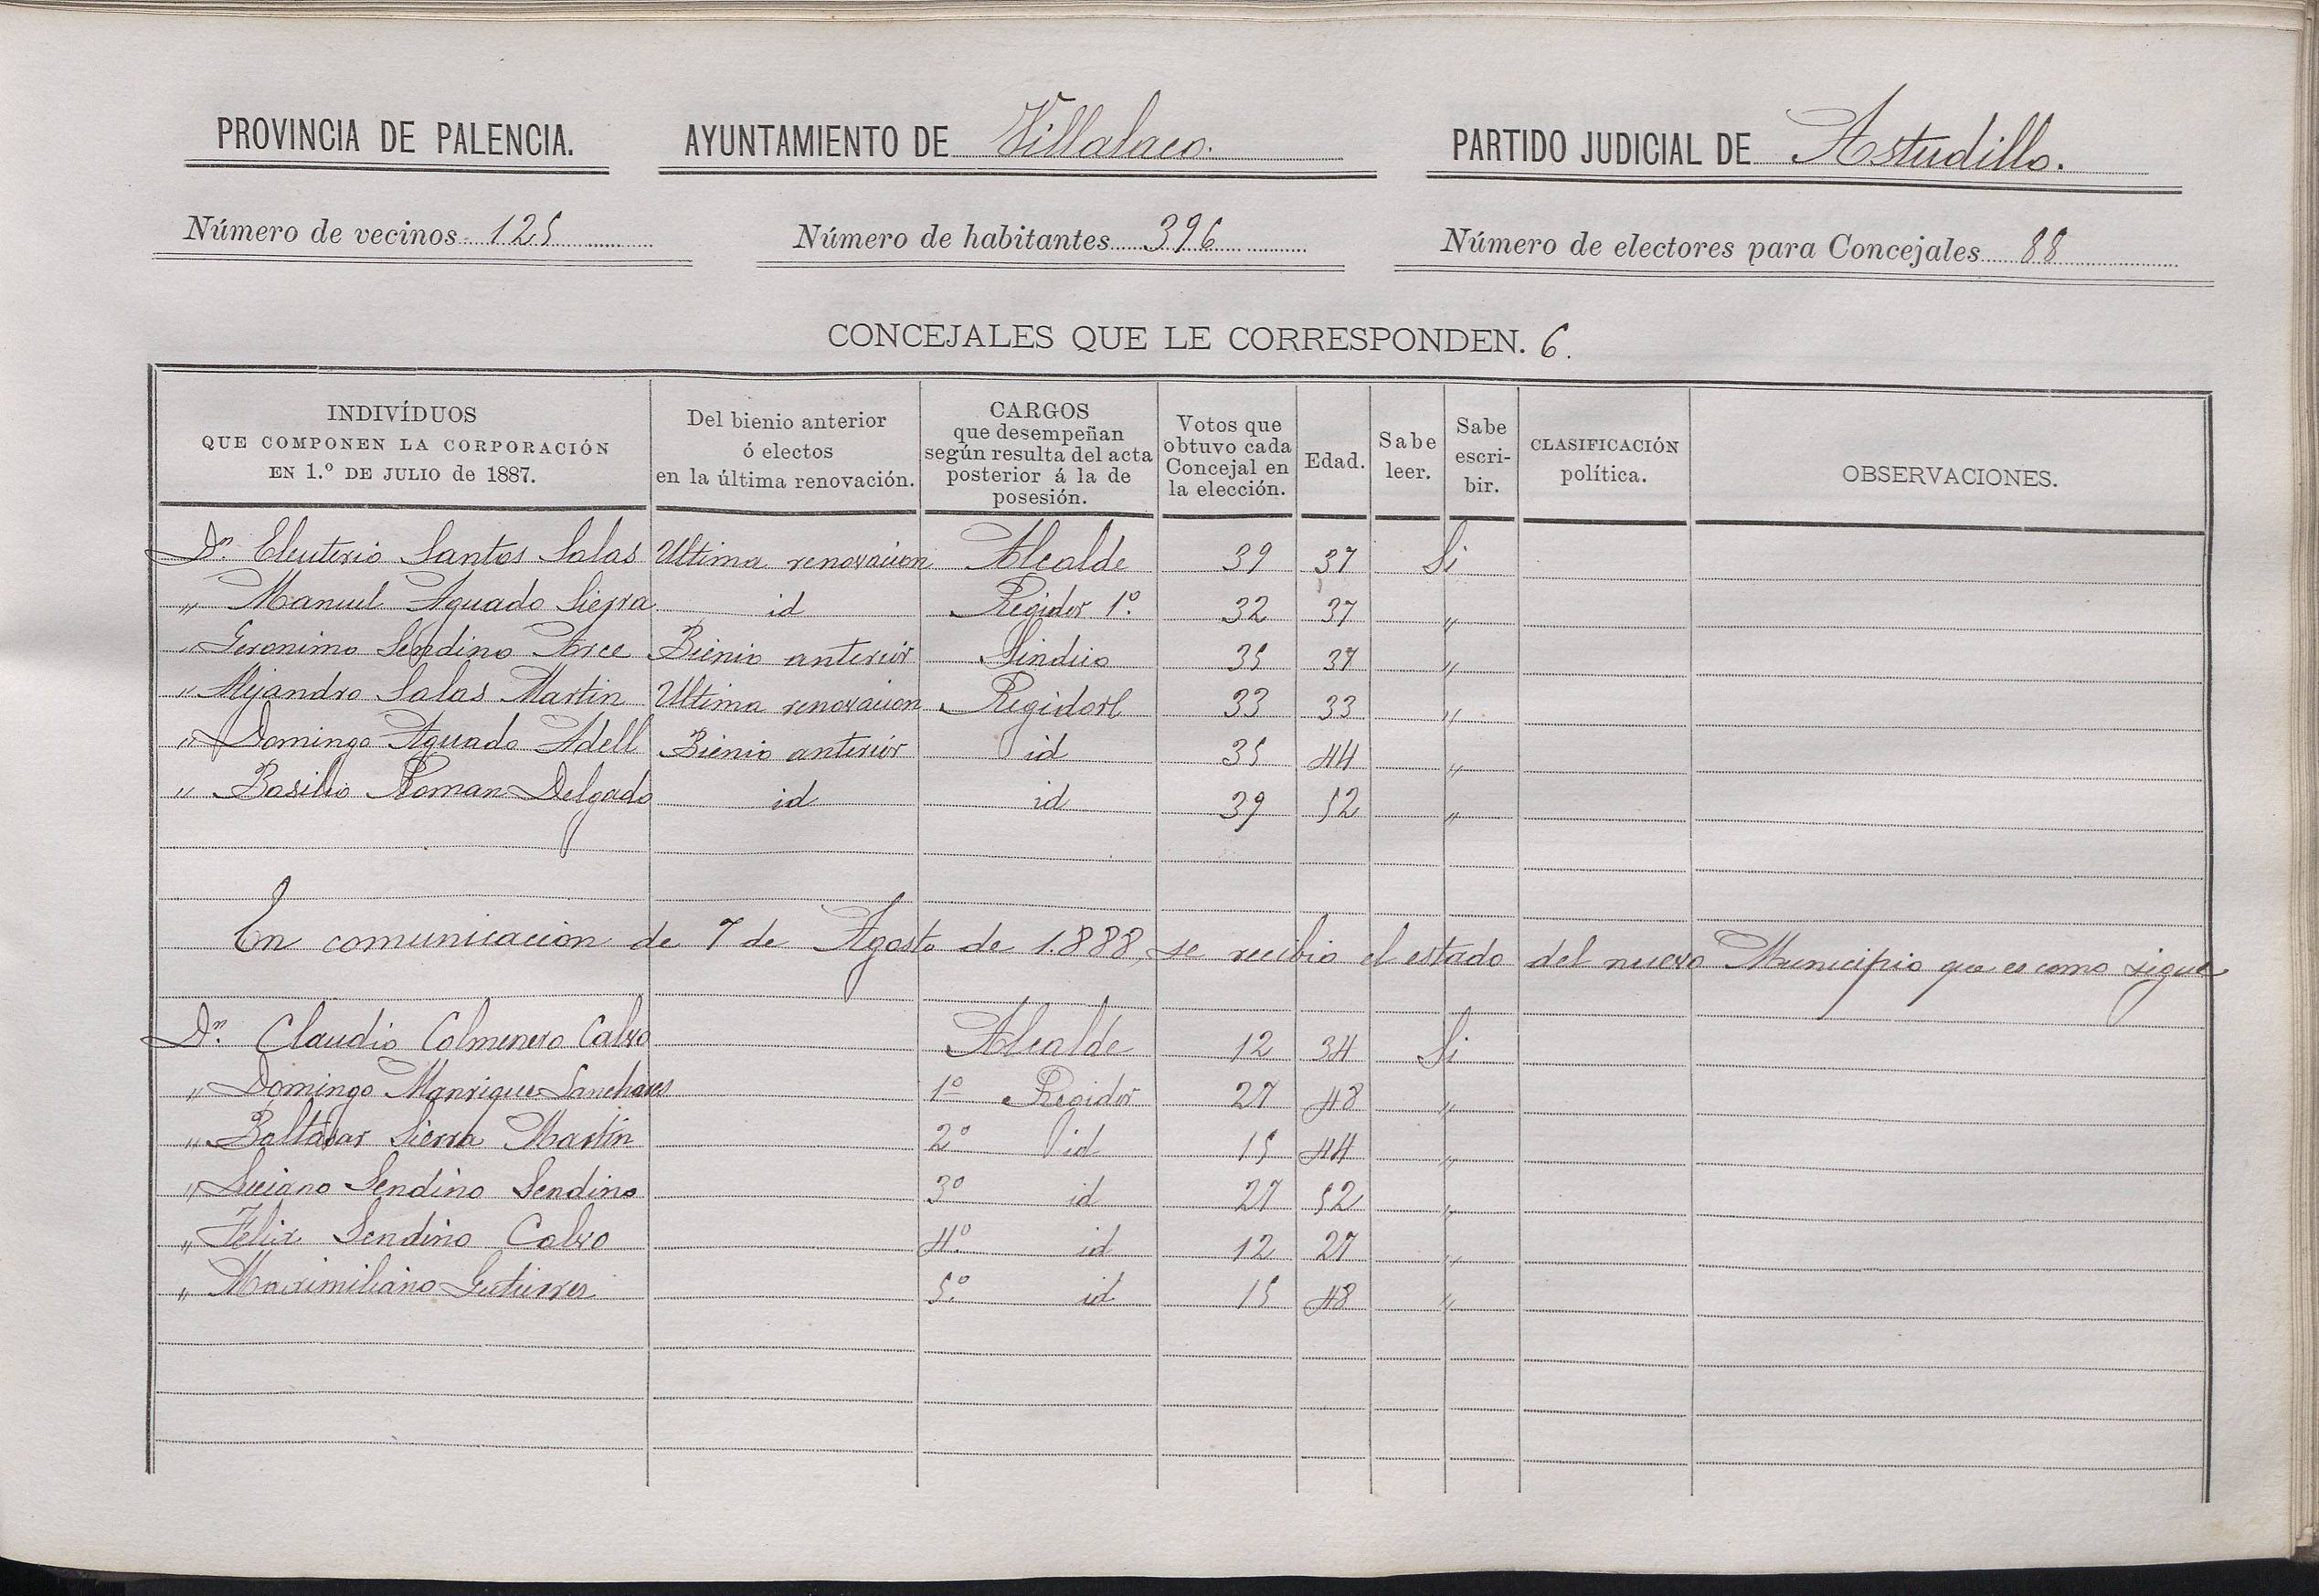 PROVINCIA DE PALENCIA. AYUNTAMIENTO DE Villalaco. PARTIDO JUDICIAL DE Astudillo.
Número de vecinos 125 Número de habitantes 396 Número de electores para Concejales 88
CONCEJALES QUE LE CORRESPONDEN. 6.
INDIVÍDUOS QUE COMPONEN LA CORPORACIÓN EN 1.º DE JULIO de 1887. Del bienio anterior ó electos en la última renovación. CARGOS que desempeñan según resulta del acta posterior á la de posesión. Votos que obtuvo cada Concejal en la elección. Edad. Sabe leer. Sabe escribir. CLASIFICACIÓN política. OBSERVACIONES.
Dn. Eleuterio Santos Salas Ultima renovacion Alcalde 39 37 Si
" Manuel Aguado Sierra id Regidor 1º. 32 37 "
" Geronimo Sendino Arce Bienio anterior Sindico 35 37 "
" Alejandro Salas Martin Ultima renovacion Regidor 33 33 "
" Domingo Aguado Adell Bienio anterior id 35 44 "
" Basilio Roman Delgado id id 39 52 "
En comunicacion de 7 de Agosto de 1.888, se recibio el estado del nuevo Municipio que es como sigue
Dn. Claudio Colmenero Calvo Alcalde 12 34 Si
" Domingo Manrique 1º Regidor 27 48 "
" Baltasar Sierra Martin 2º id 15 44 "
" Luciano Sendino Sendino 3º id 27 52 "
" Felix Sendino Calvo 4º. id 12 27 "
" Maximiliano Gutierrez 5º. id 15 48 "